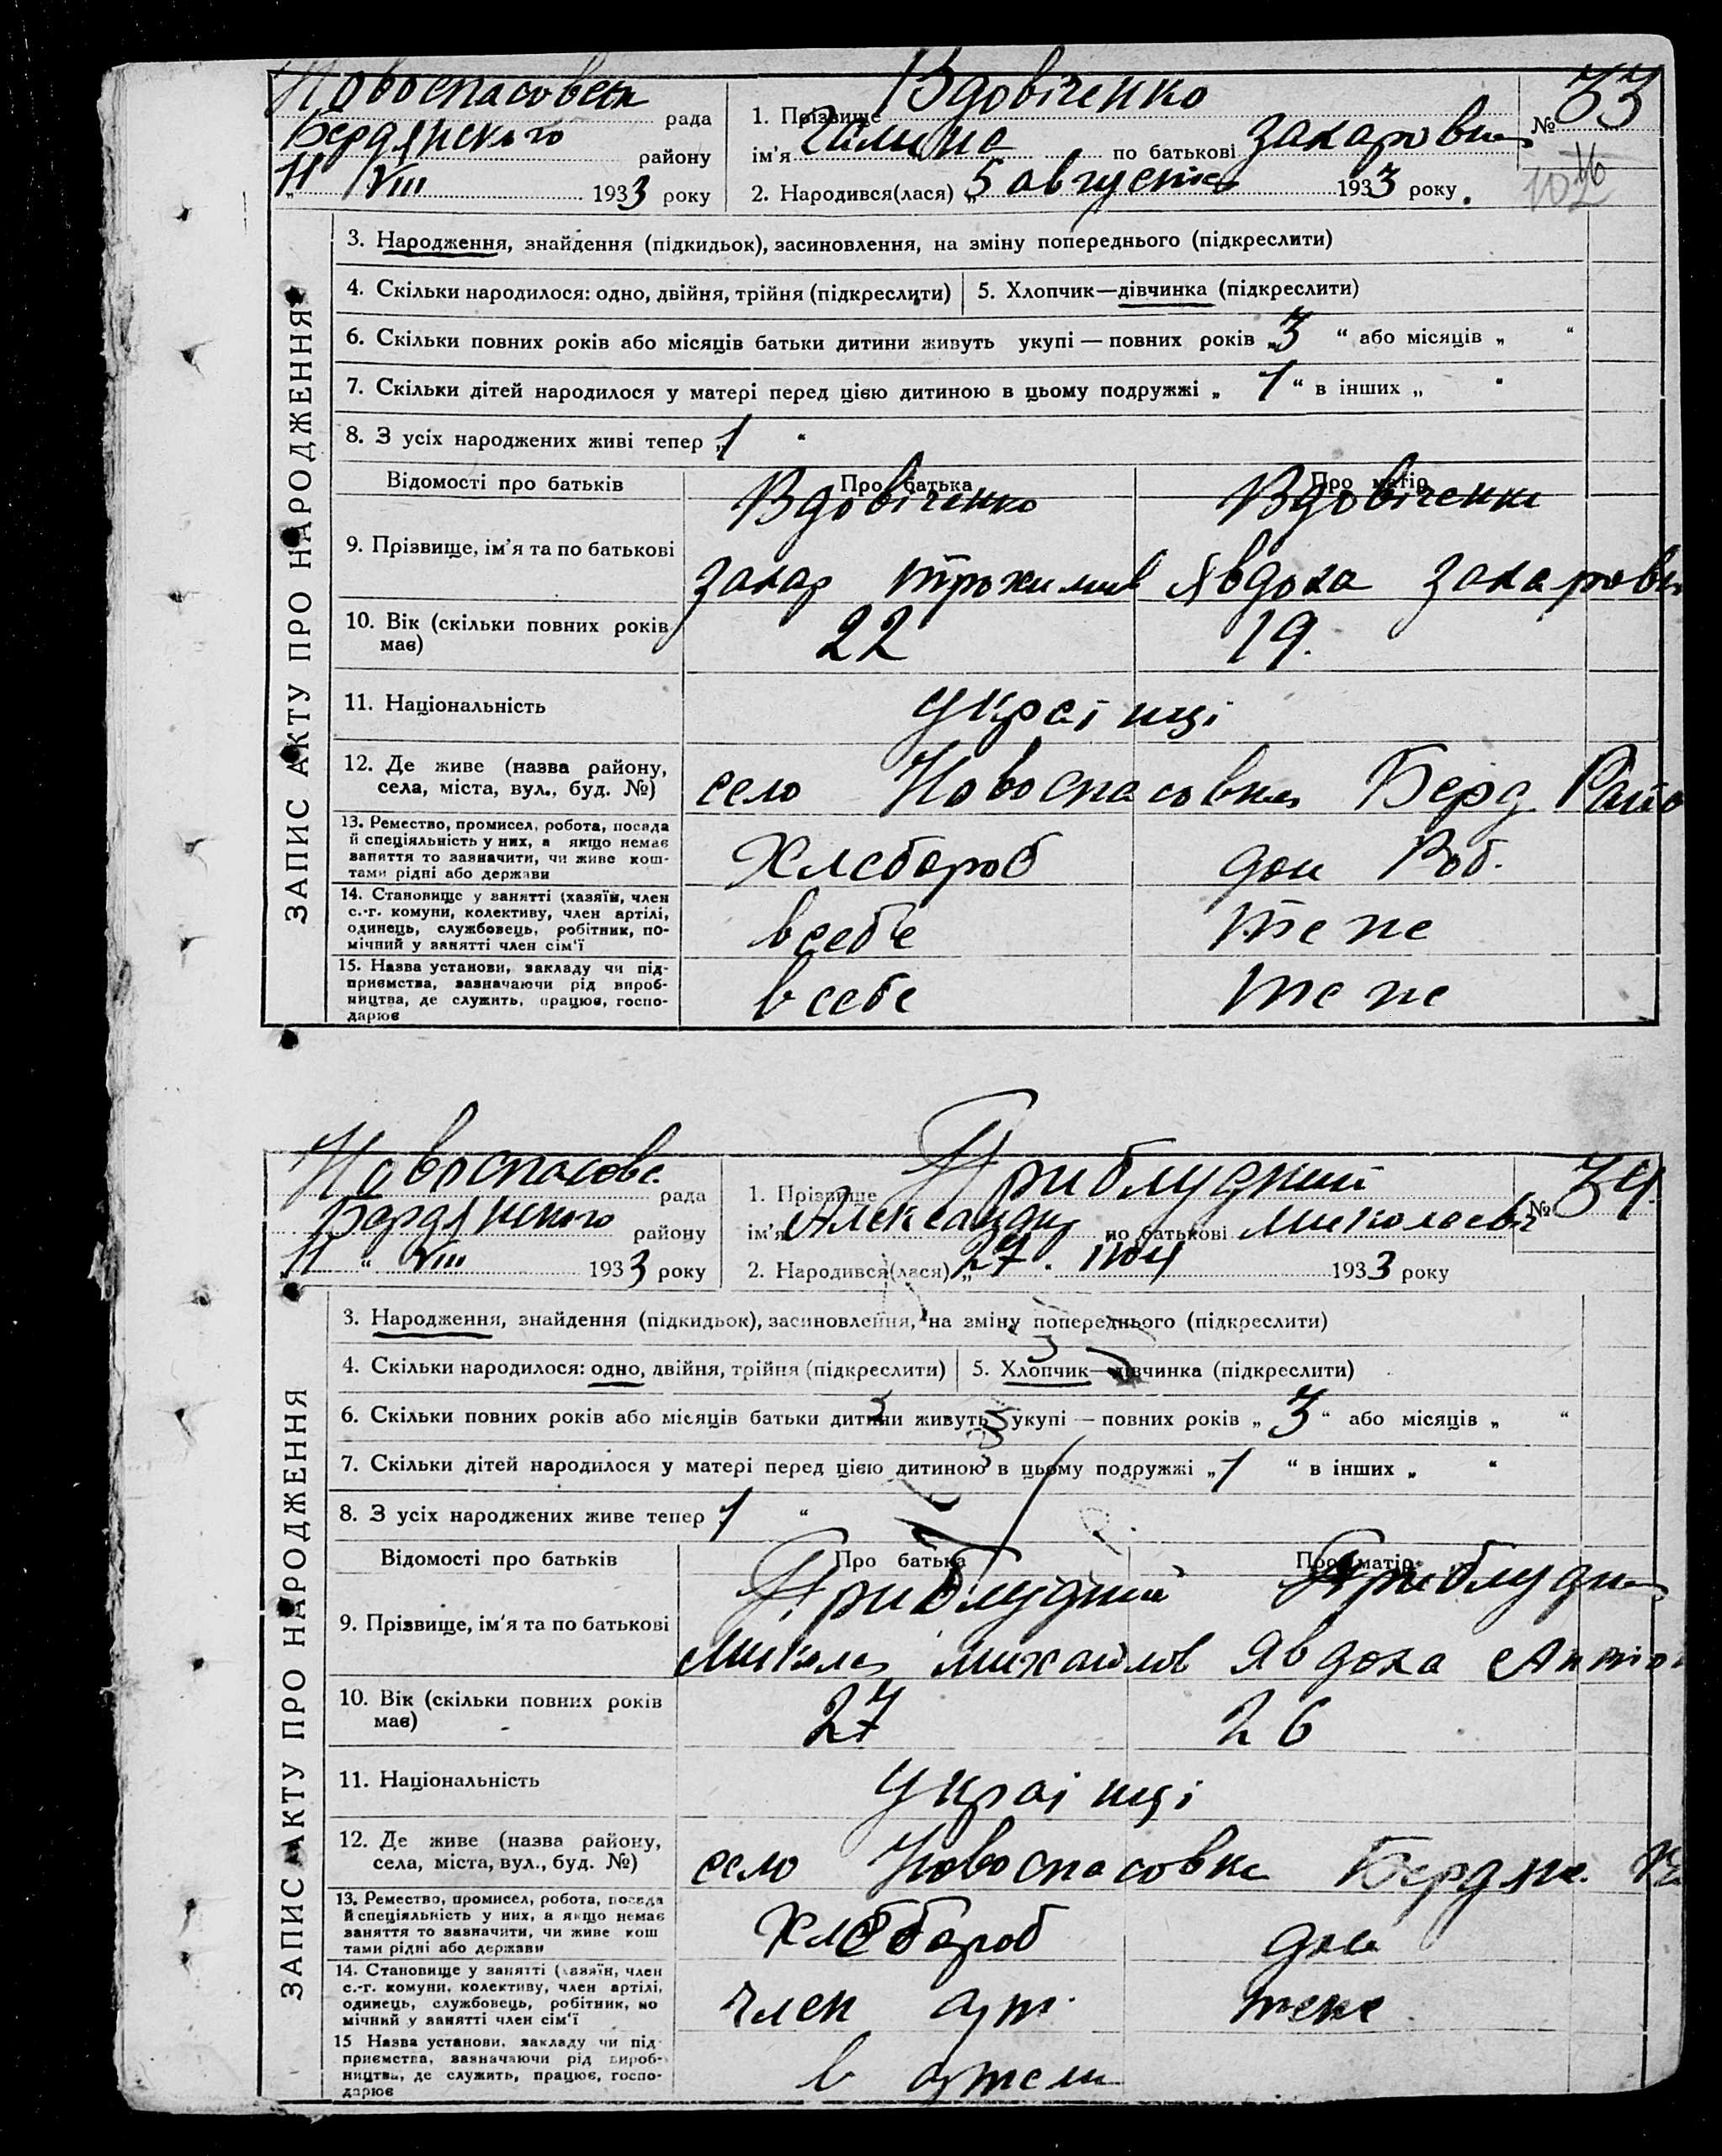 Новоспасовськ рада
Бердянського району
"11" VIII 1933 року
1. Прізвище Вдовіченко
ім'я Галина по батькові Захаровна
2. Народився(лася) „5 августа 1933 року.
№ 33
ЗАПИС АКТУ ПРО НАРОДЖЕННЯ
3. Народження, знайдення (підкидьок), засиновлення, на зміну попереднього (підкреслити)
4. Скільки народилося: одно, двійня, трійня (підкреслити) 5. Хлопчик—дівчинка (підкреслити)
6. Скільки повних років або місяців батьки дитини живуть укупі — повних років „3“ або місяців „ “
7. Скільки дітей народилося у матері перед цією дитиною в цьому подружжі „1“ в інших „ “
8. З усіх народжених живі тепер „1“
Відомості про батьків Про батька Про матір
Вдовіченко Вдовіченко
9. Прізвище, ім'я та по батькові
Захар Трохимов Явдоха Захаровн
10. Вік (скільки повних років має) 22 19.
11. Національність Українці
12. Де живе (назва району, села, міста, вул., буд. №) село Новоспасовка Берд. Райо
13. Ремество, промисел, робота, посада
й спеціяльність у них, а якщо немає
заняття то зазначити, чи живе кош-
тами рідні або держави
Хлебороб дом Роб.
14. Становище у занятті (хазяїн, член
с.-г. комуни, колективу, член артілі,
одинець, службовець, робітник, по-
мічний у занятті член сім'ї
в себе те же
15. Назва установи, закладу чи під-
приємства, зазначаючи рід вироб-
ництва, де служить, працює, госпо-
дарює
в себе те же
Новоспасовс. рада
Бердянського району
„11“ VIII 1933 року
1. Прізвище Приблудний
ім'я Александр по батькові Миколаевіч
2. Народився(лася) „27. июл 1933 року
№ 34
ЗАПИС АКТУ ПРО НАРОДЖЕННЯ
3. Народження, знайдення (підкидьок), засиновлення, на зміну попереднього (підкреслити)
4. Скільки народилося: одно, двійня, трійня (підкреслити) 5. Хлопчик—дівчинка (підкреслити)
6. Скільки повних років або місяців батьки дитини живуть укупі — повних років „3“ або місяців „ “
7. Скільки дітей народилося у матері перед цією дитиною в цьому подружжі „1“ в інших „ “
8. З усіх народжених живе тепер „1“
Відомості про батьків Про батька Про матір
Приблудний Приблудна
9. Прізвище, ім'я та по батькові
Микола Михайлов Явдоха Антон
10. Вік (скільки повних років має) 27 26
11. Національність Українці
12. Де живе (назва району, села, міста, вул., буд. №) село Новоспасовка Бердянс.
13. Ремество, промисел, робота, посада
й спеціяльність у них, а якщо немає
заняття то зазначити, чи живе кош
тами рідні або держави
Хлебороб дом
14. Становище у занятті (хазяїн, член
с.-г. комуни, колективу, член артілі,
одинець, службовець, робітник, по
мічний у занятті член сім'ї
член арт. теже
15 Назва установи, закладу чи під-
приємства, зазначаючи рід вироб-
ництва, де служить, працює, госпо-
дарює
в артели